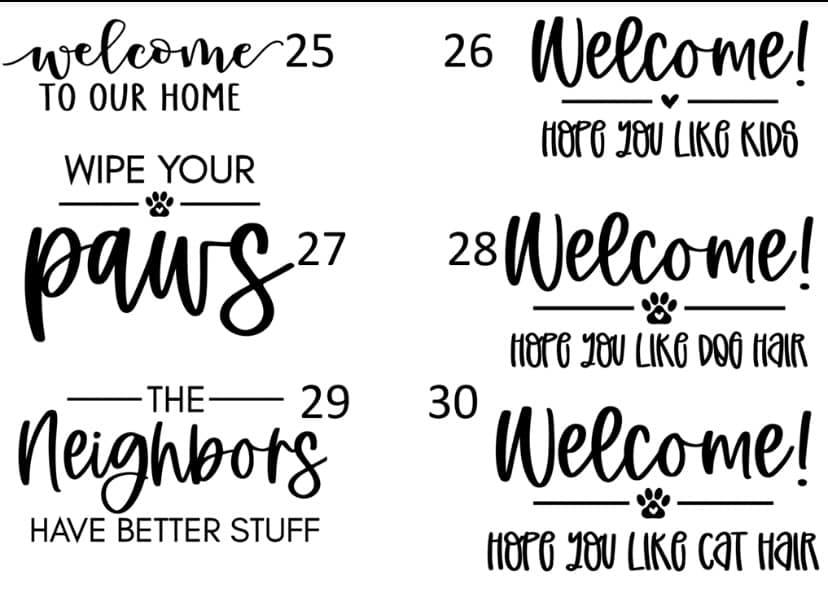 welcome 25
TO OUR HOME
26 Welcome!
HOPE YOU LIKE KIDS
WIPE YOUR
paws 27
28 Welcome!
HOPE YOU LIKE DOG HAIR
THE 29
Neighbors
HAVE BETTER STUFF
30 Welcome!
HOPE YOU LIKE CAT HAIR